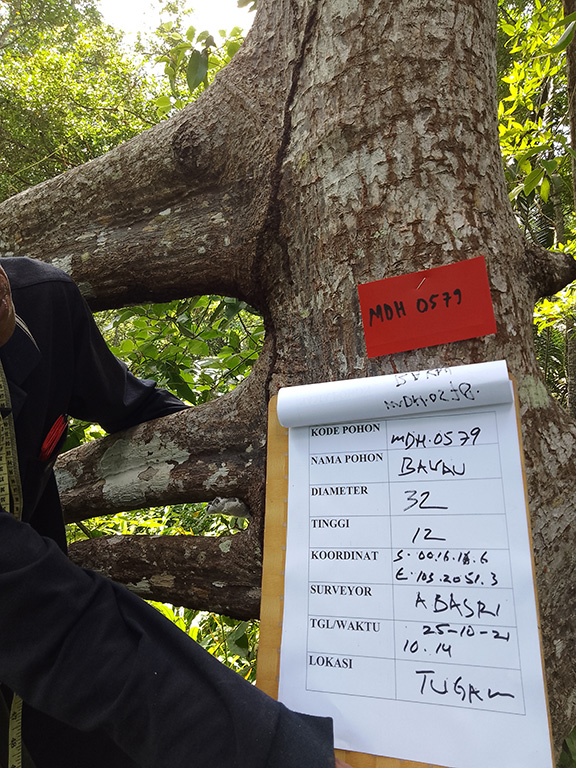 MDH 0579
MDH.0218.
KODE POHON MDH.0579
NAMA POHON BAKAU
DIAMETER 32
TINGGI 12
KOORDINAT S. 00.16.18.6
E. 103.2051.3
SURVEYOR ABASRI
TGL/WAKTU 25-10-21
10.14
LOKASI TUGAN